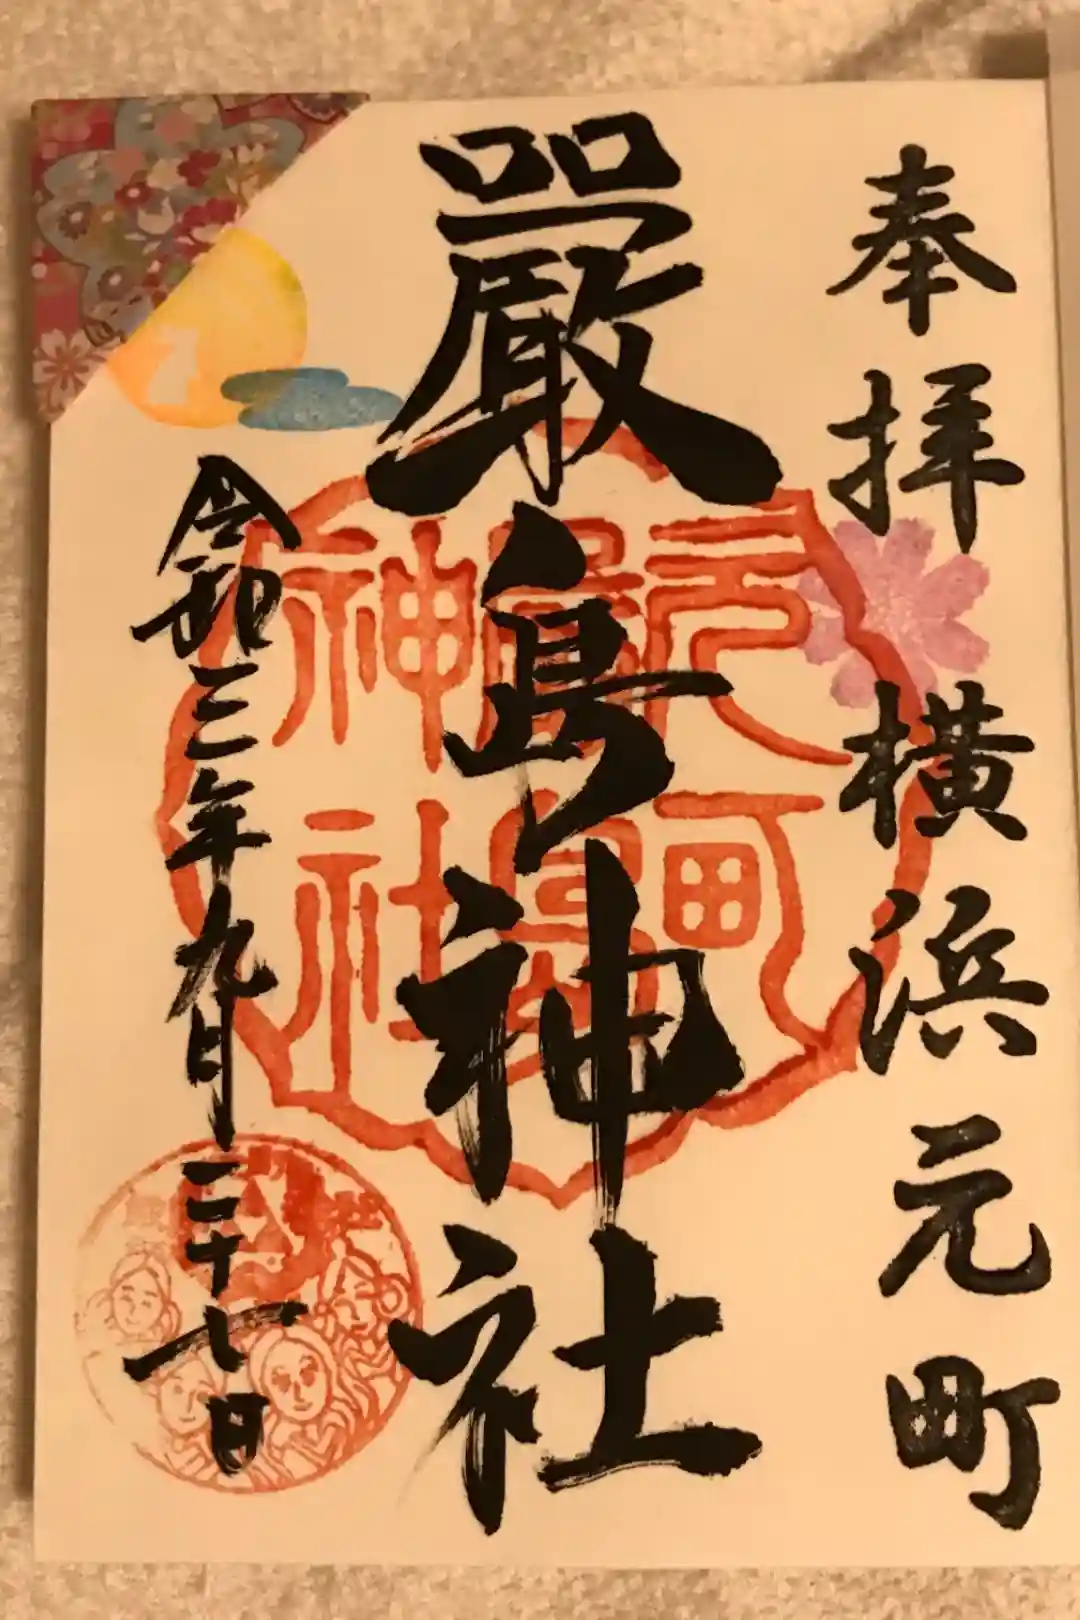 奉拝 横浜元町
嚴島神社
令和三年九月二十七日
元町
嚴島
神社